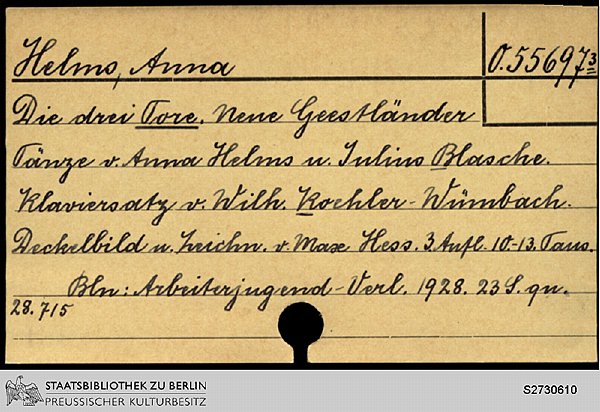 Helms, Anna
O. 55697 3
Die drei Tore. Neue Geestländer
Tänze v. Anna Helms u. Julius Blasche.
Klaviersatz v. Wilh. Koehler-Wümbach.
Deckelbild u. Zeichn. v. Max Hess. 3. Aufl. 10.-13. Taus.
Bln: Arbeiterjugend-Verl. 1928. 23 S. qu.
28.715
STAATSBIBLIOTHEK ZU BERLIN
PREUSSISCHER KULTURBESITZ
S2730610